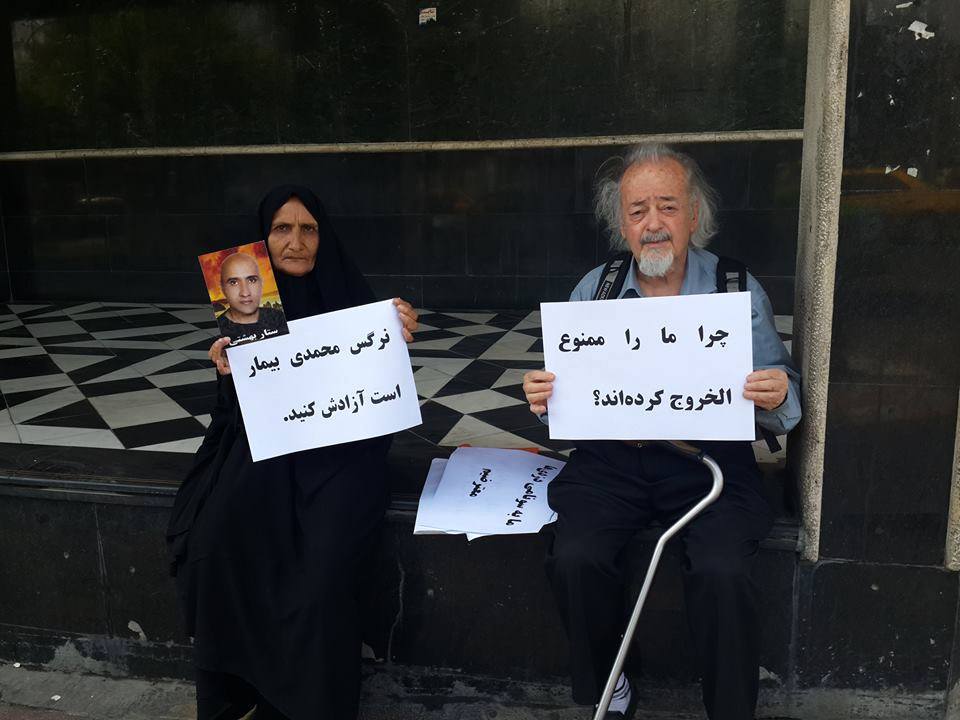 ستار بهشتی
نرگس محمدی بیمار
است آزادش کنید.
چرا ما را ممنوع
الخروج کرده‌اند؟
ما به
معترضیم